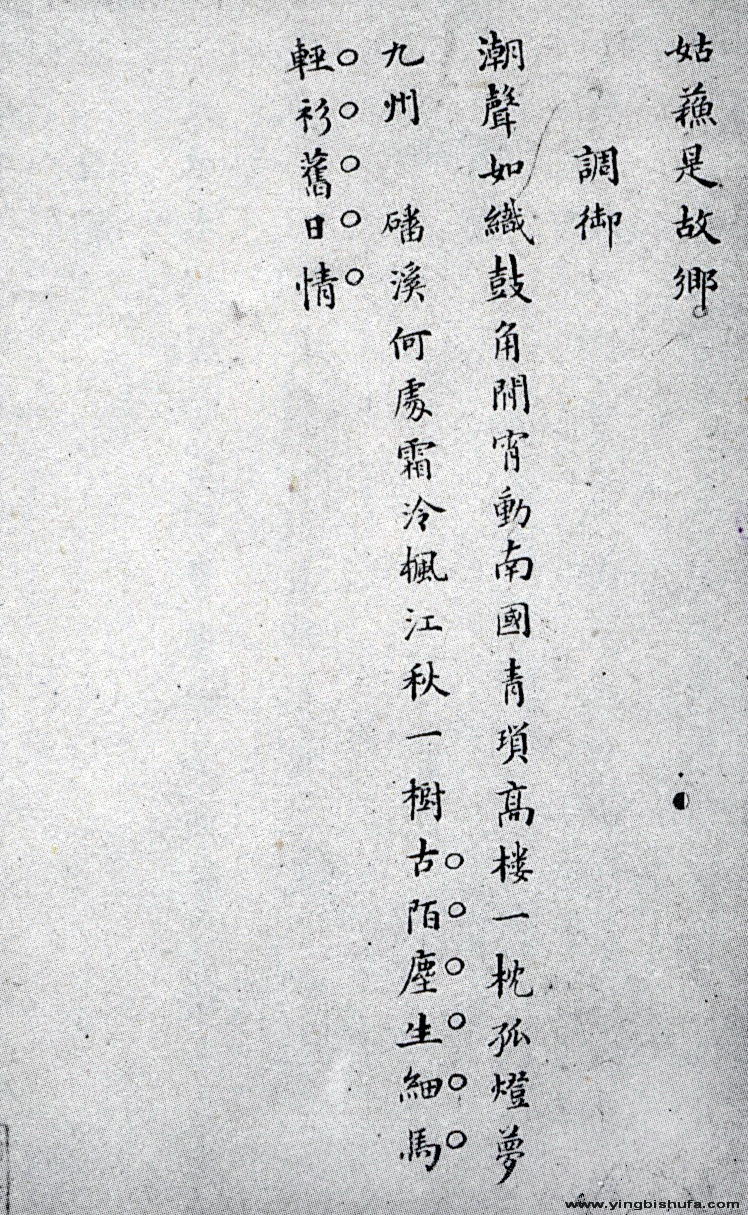 姑蘓是故鄉
調御
潮聲如織鼓角閒宵動南國青瑣高楼一枕孤燈夢
九州 磻溪何處霜冷楓江秋一樹古陌塵生細馬
輕衫舊日情
www.yingbishufa.com